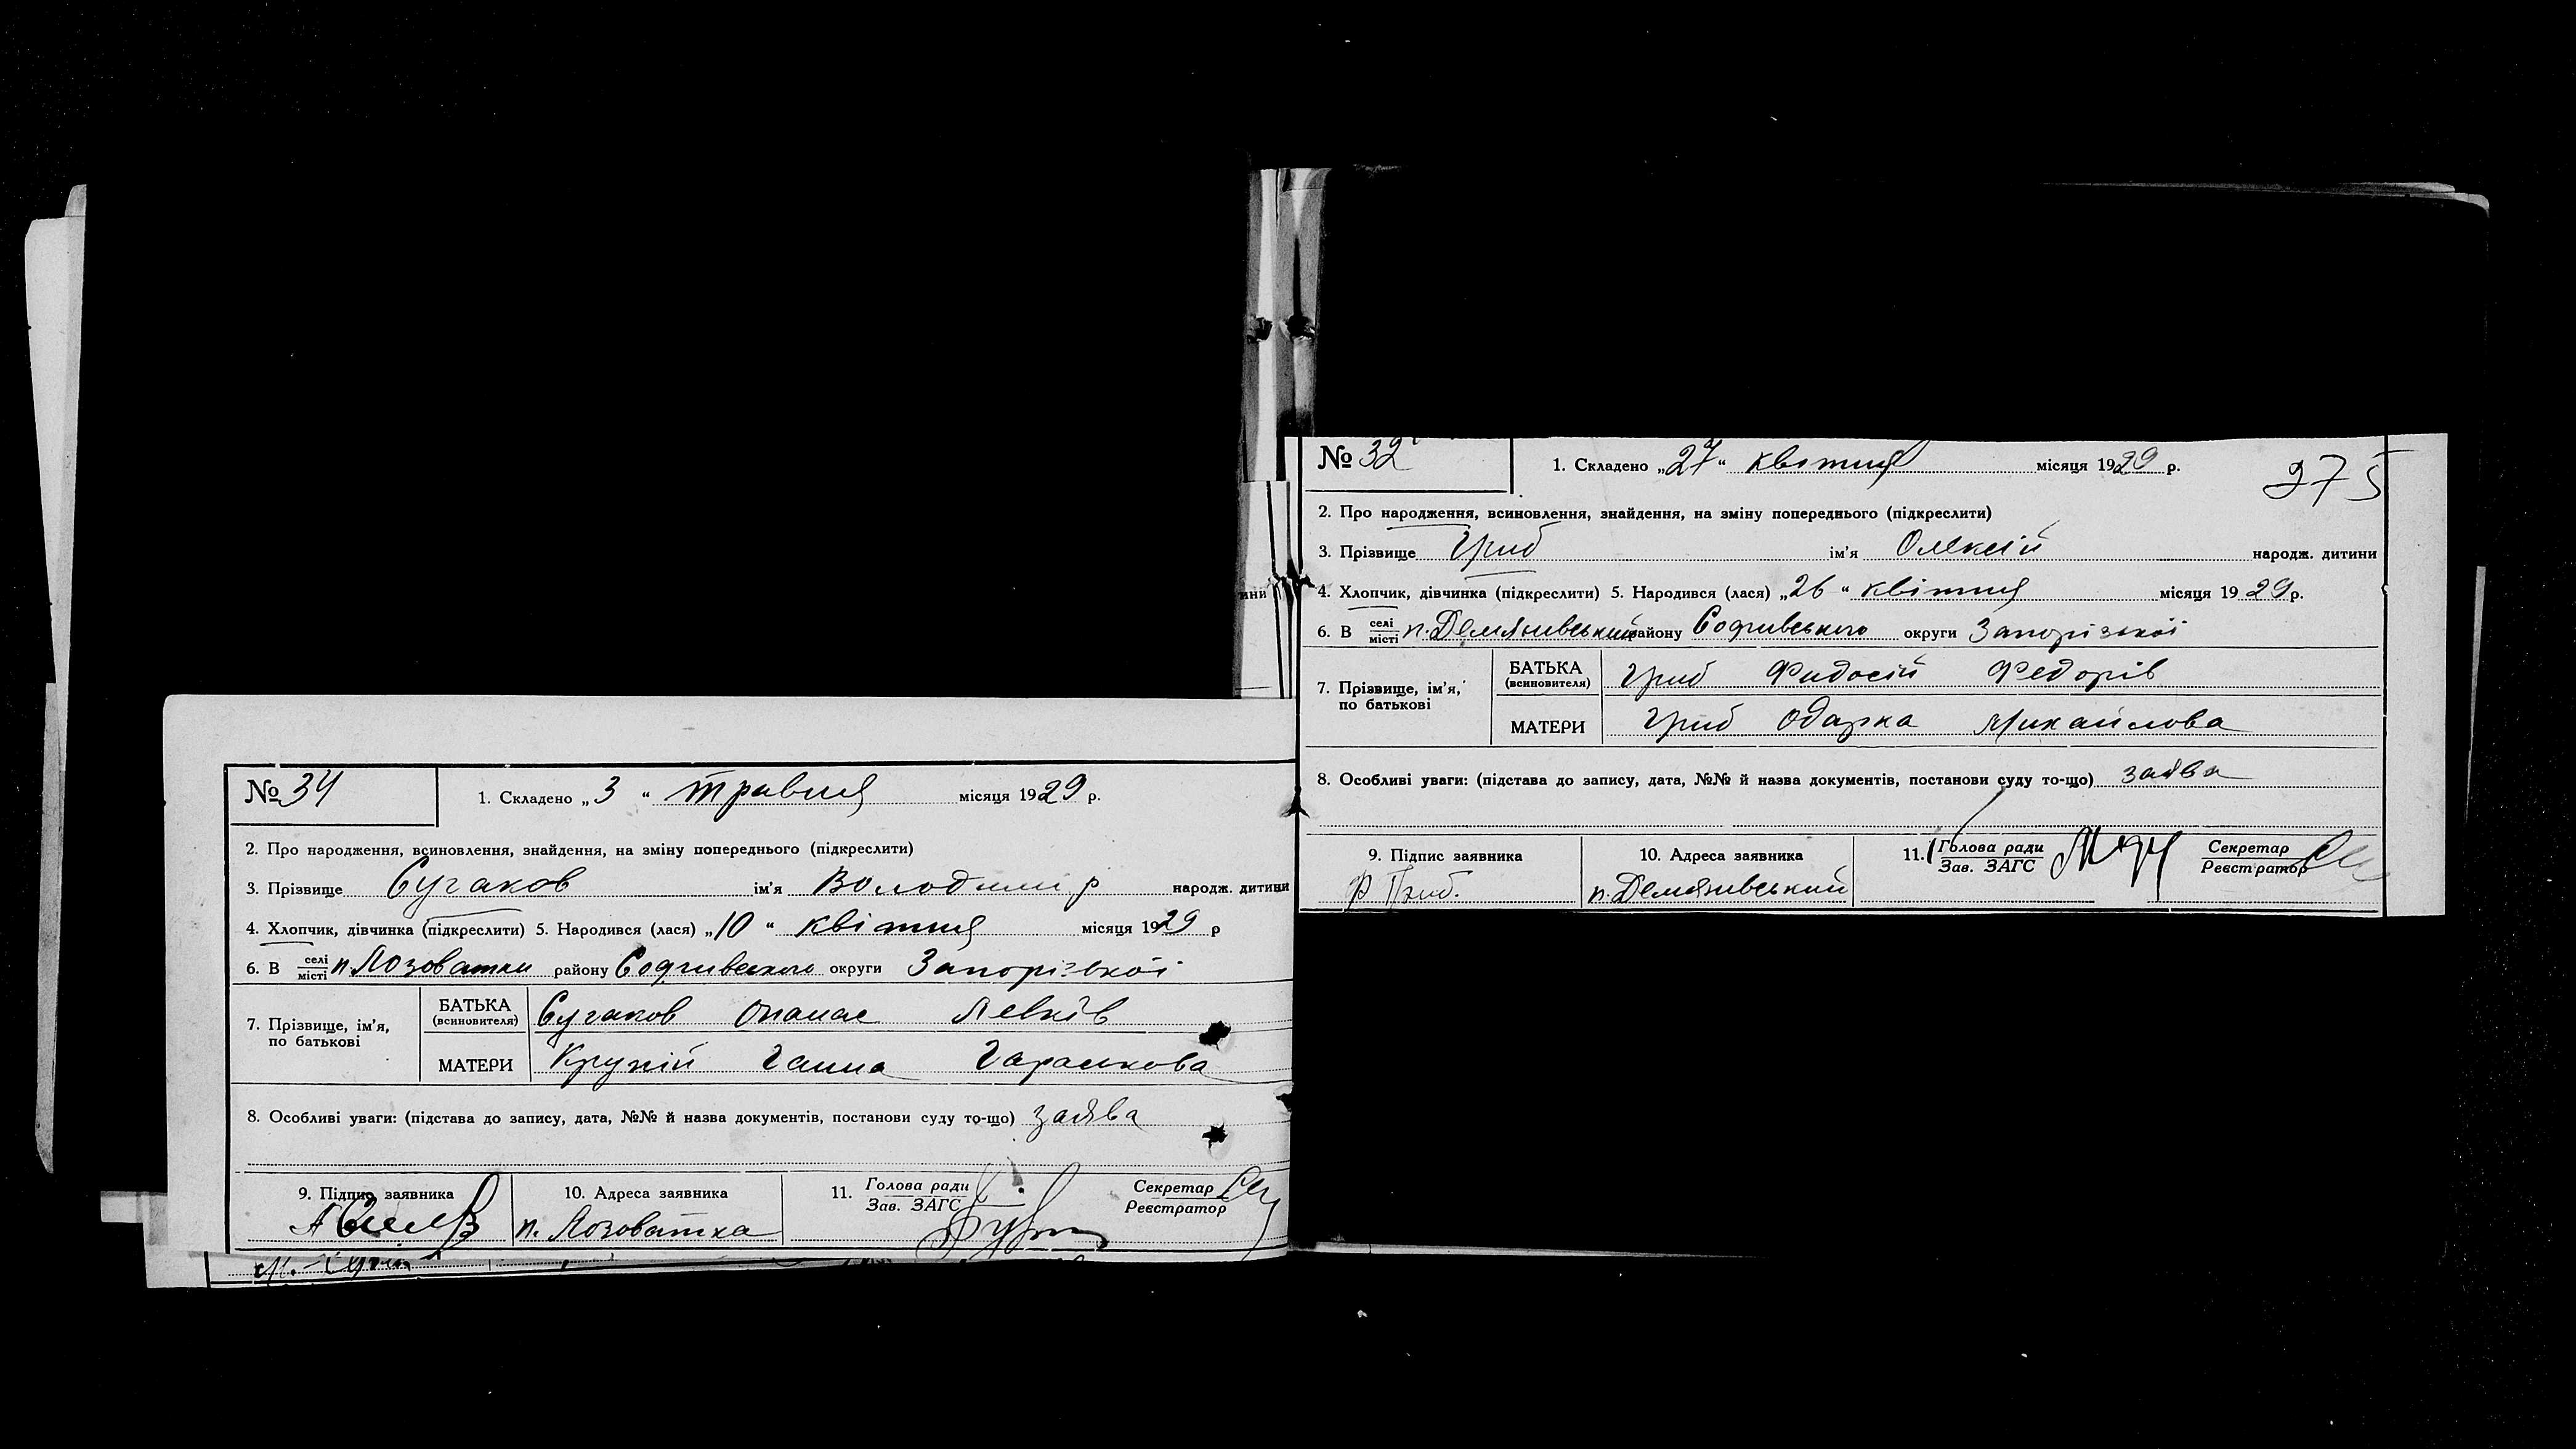 № 34
1. Складено „3“ травня місяця 1929 р.
2. Про народження, всиновлення, знайдення, на зміну попереднього (підкреслити)
3. Прізвище Сугаков ім'я Володимир народж. дитини
4. Хлопчик, дівчинка (підкреслити) 5. Народився (лася) „10“ квітня місяця 1929 р
6. В селі місті п. Лозоватки району Софиевського округи Запорізької
7. Прізвище, ім'я, по батькові
БАТЬКА (всиновителя) Сугаков Опанас Левків
МАТЕРИ Крупій Ганна Тараськова
8. Особливі уваги: (підстава до запису, дата, №№ й назва документів, постанови суду то-що) заява
9. Підпис заявника
10. Адреса заявника
п. Лозоватка
11. Голова ради
Зав. ЗАГС
Секретар
Реєстратор
ини
№ 32
1. Складено „27“ квітня місяця 1929 р.
275
2. Про народження, всиновлення, знайдення, на зміну попереднього (підкреслити)
3. Прізвище Гриб ім'я Олексій народж. дитини
4. Хлопчик, дівчинка (підкреслити) 5. Народився (лася) „26“ квітня місяця 1929 р.
6. В селі місті п. Демянивський району Софиевського округи Запорізької
7. Прізвище, ім'я, по батькові
БАТЬКА (всиновителя) Гриб Фидосій Федорів
МАТЕРИ Гриб Одарка Михайлова
8. Особливі уваги: (підстава до запису, дата, №№ й назва документів, постанови суду то-що) заява
9. Підпис заявника
Ф Гриб.
10. Адреса заявника
п. Демянивський
11. Голова ради
Зав. ЗАГС
Секретар
Реєстратор